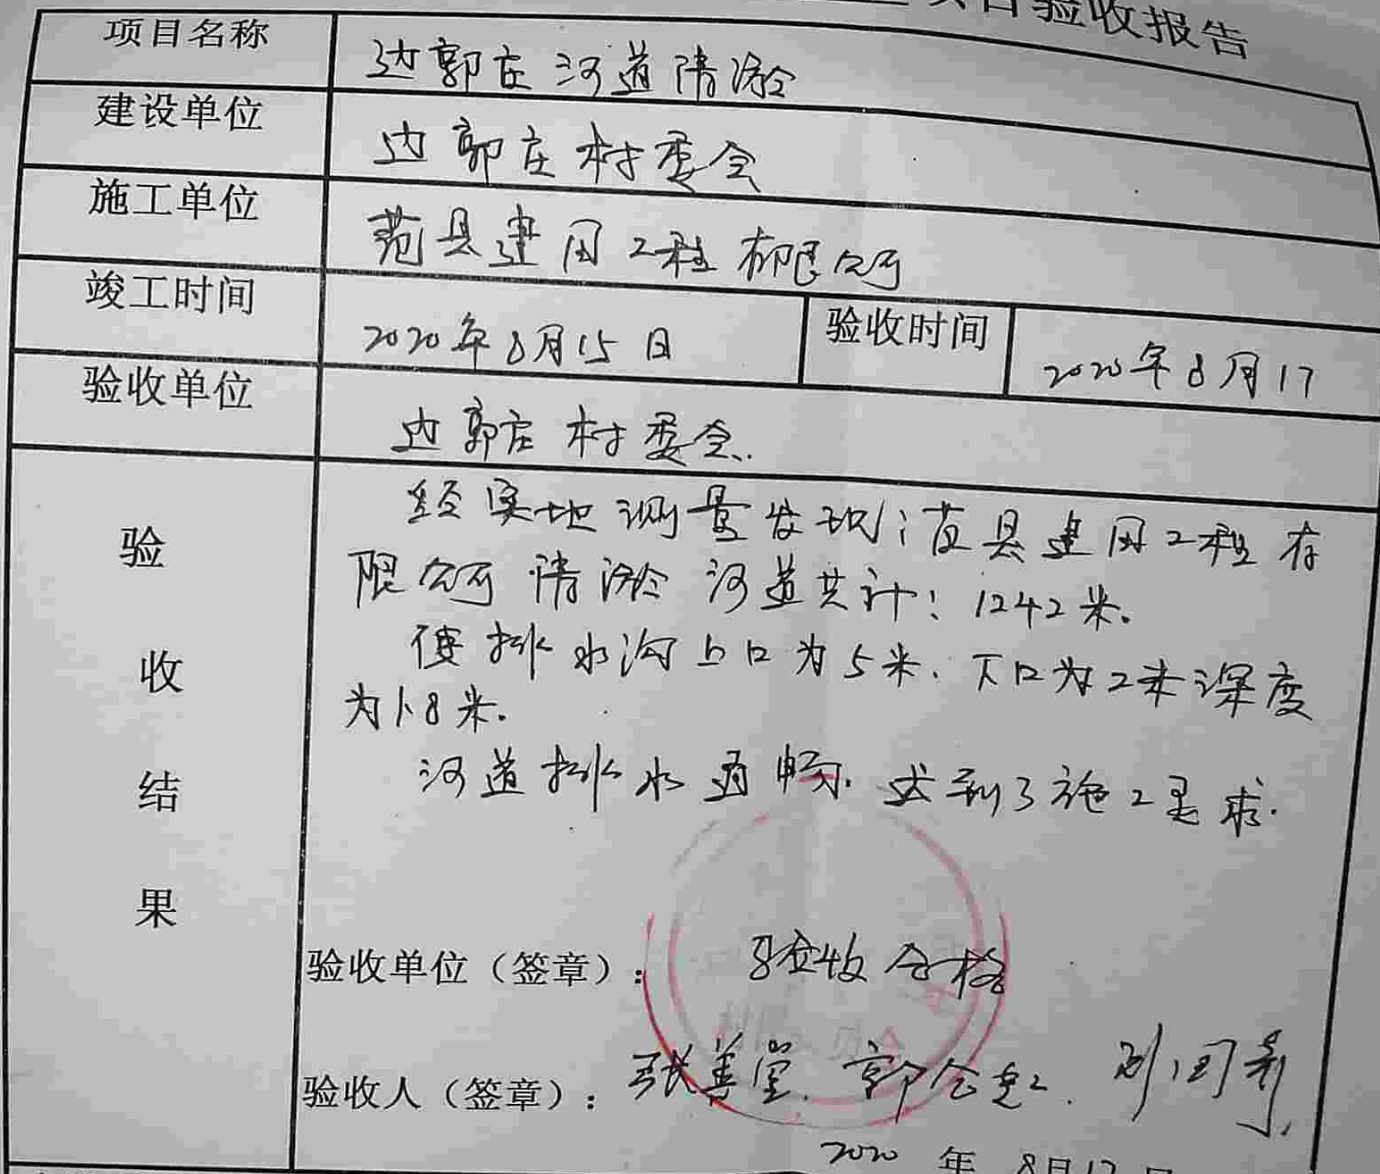 项目验收报告
项目名称 边郭庄河道清淤
建设单位 边郭庄村委会
施工单位 范县建国工程有限公司
竣工时间 2020年8月15日 验收时间 2020年8月17
验收单位 边郭庄村委会.
验收结果
经实地测量发现;范县建国工程有
限公司清淤河道共计: 1242米.
使排水沟上口为5米.下口为2米深度
为1.8米.
河道排水通畅.达到了施工要求.
验收单位(签章): 验收合格
验收人(签章): 张善堂.郭
2020年8月17日